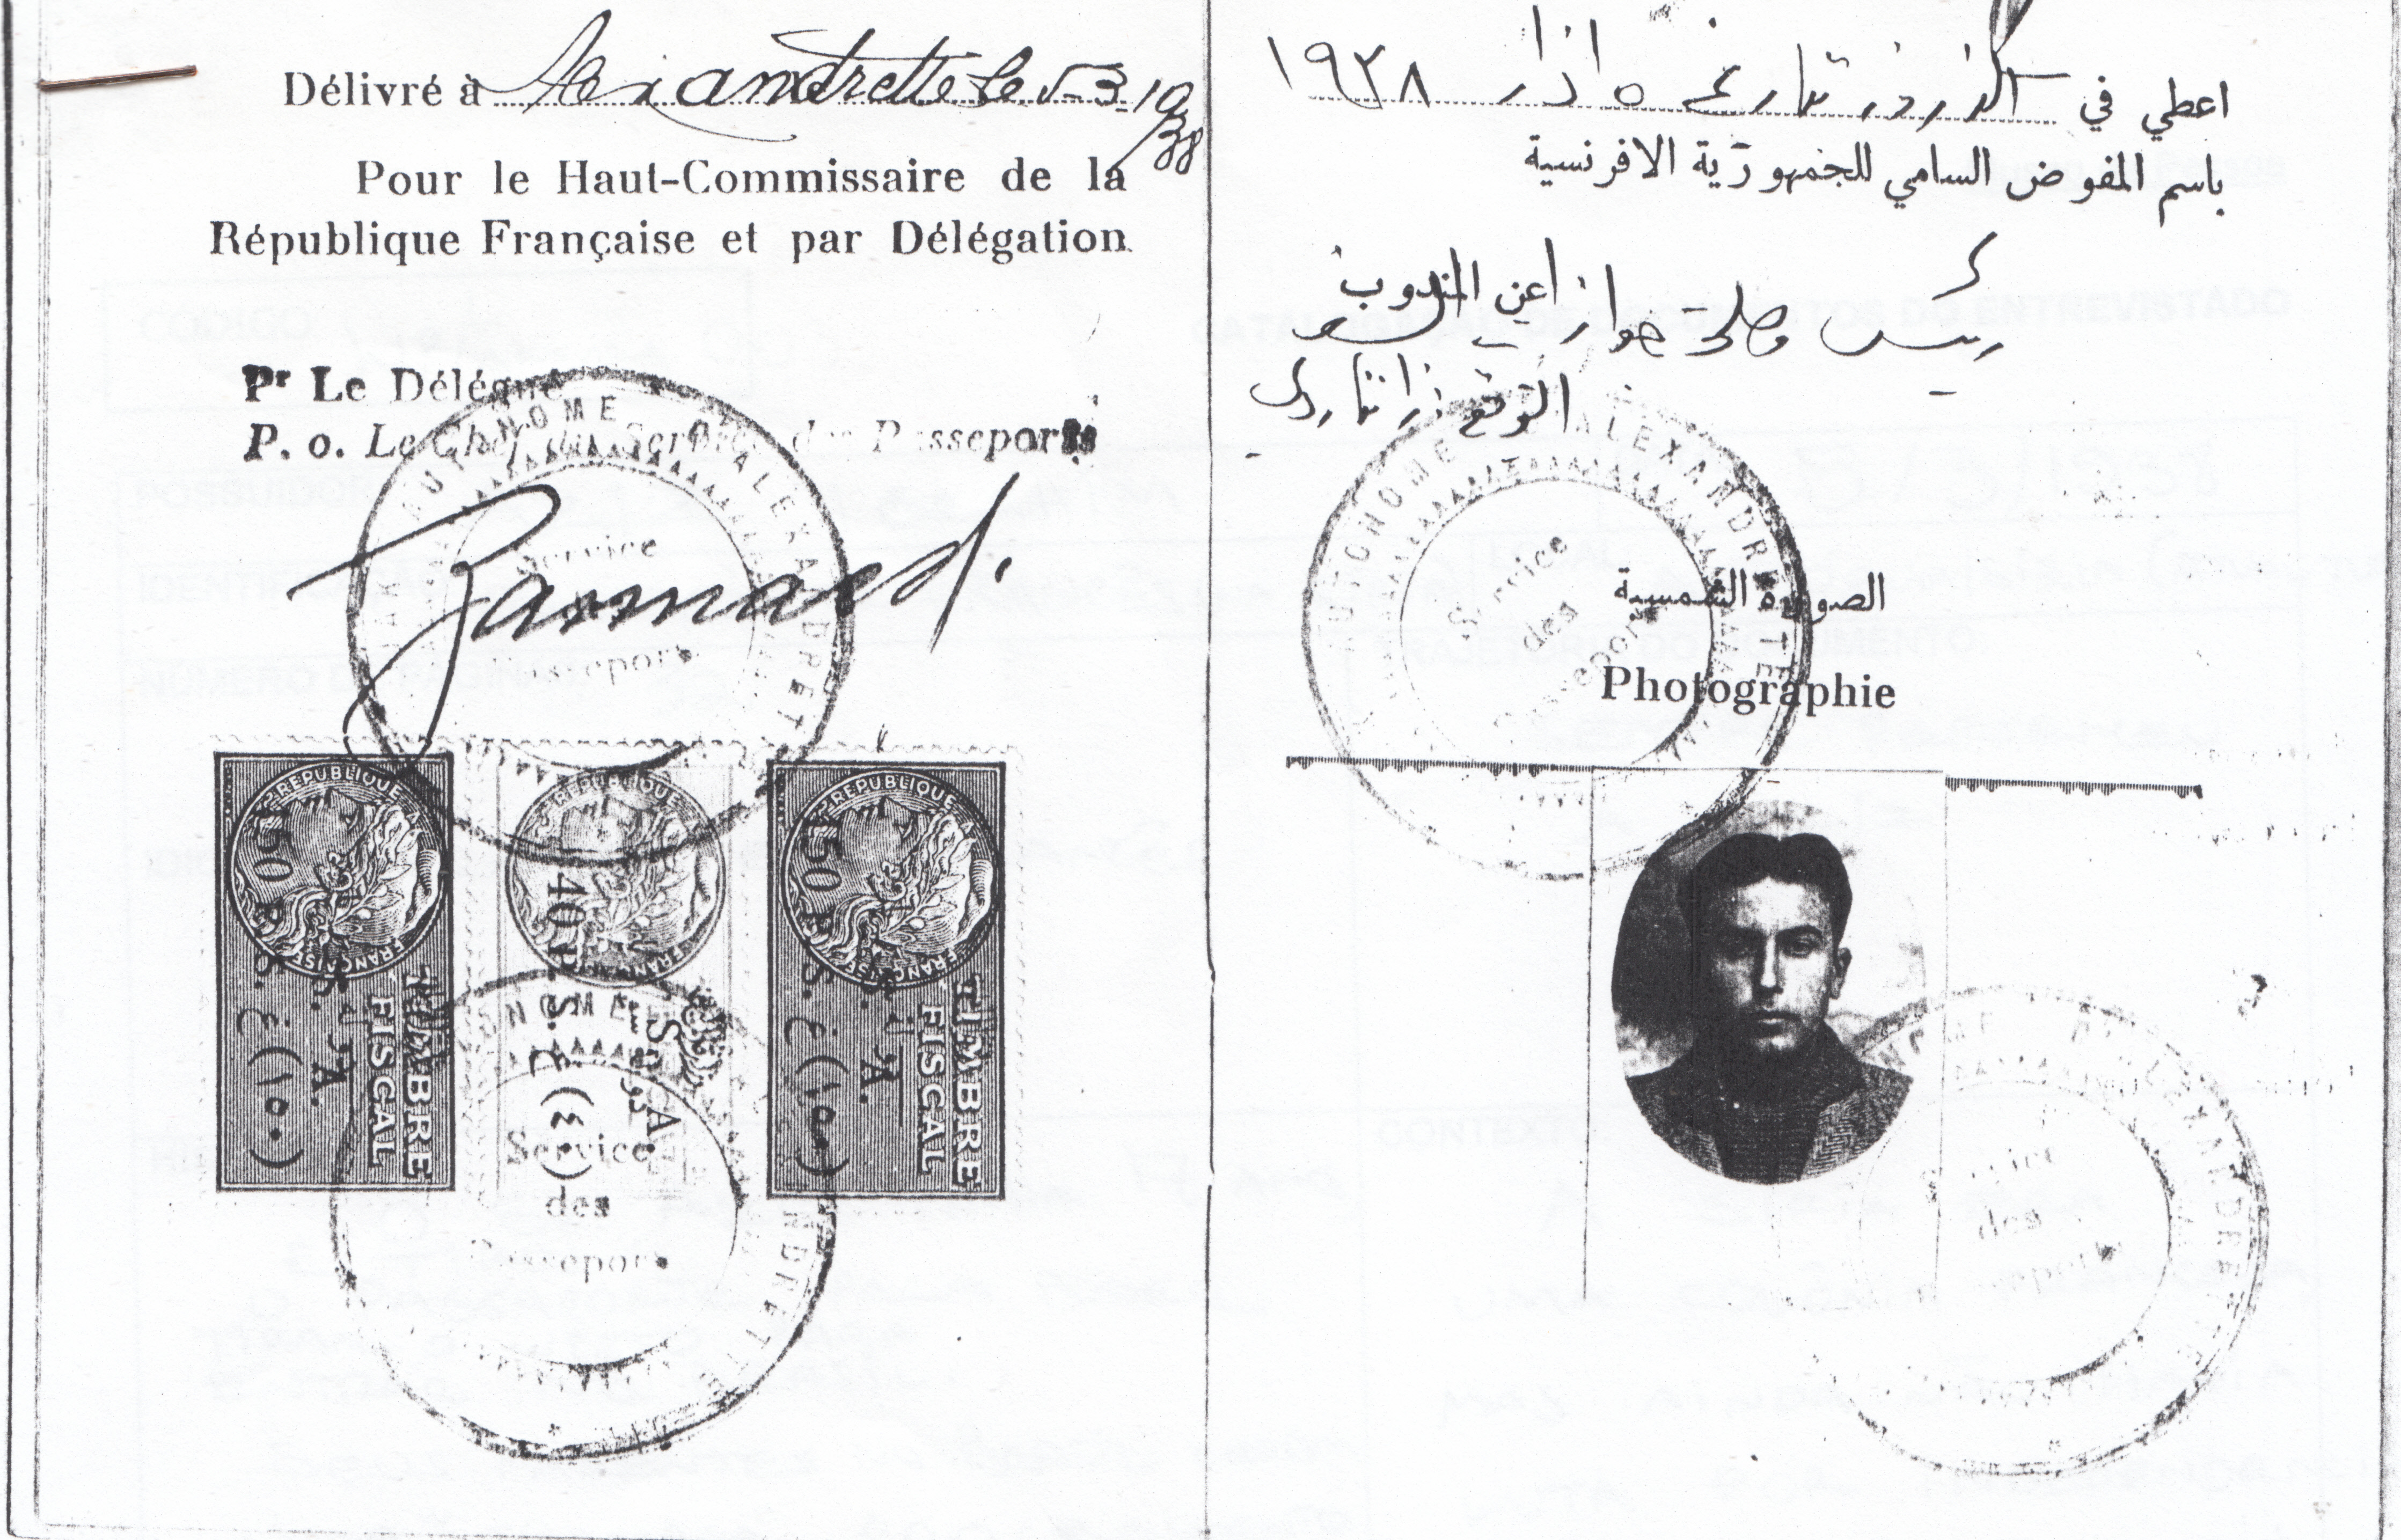 Délivré à Alexandrette le 5-3-19
38
Pour le Haut-Commissaire de la
République Française et par Délégation
Pr Le Délégué
P. o. Le Chef du Service des Passeports
AUTONOME D'ALEXANDRETTE
Service
des
Passeports
REPUBLIQUE FRANÇAISE
150 P.S.
TIMBRE
FISCAL
REPUBLIQUE FRANÇAISE
40 P.S.
REPUBLIQUE FRANÇAISE
150 P.S.
TIMBRE
FISCAL
Service
des
Passeports
اعطي في تاريخ ٥ اذار ١٩٣٨
باسم المفوض السامي للجمهورية الافرنسية
عن المندوب
رئيس مصلحة جوازات السفر
التوقيع
AUTONOME D'ALEXANDRETTE
Service
des
Passeports
الصورة الشمسية
Photographie
Service
des
Passeports